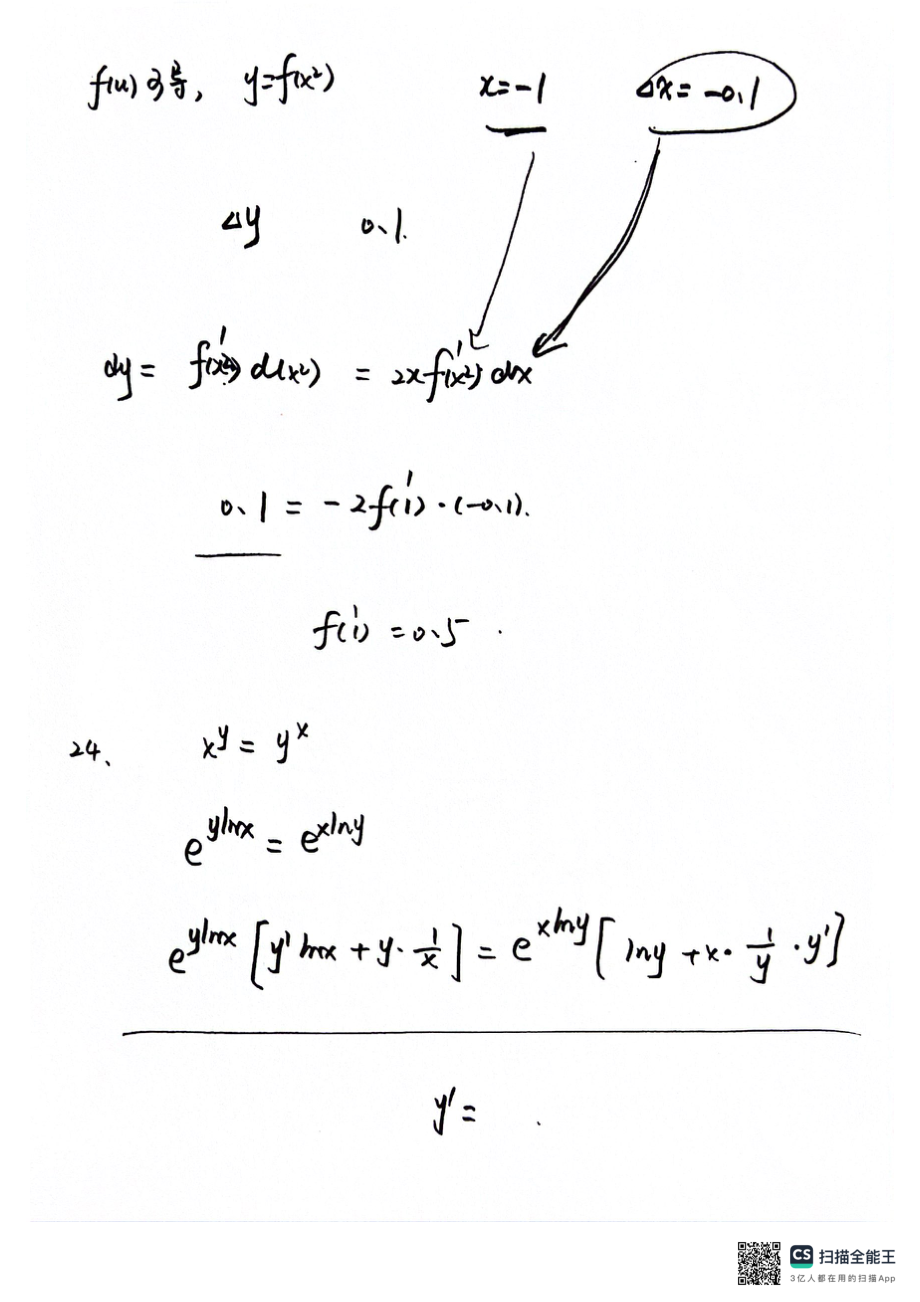 f(u)可导, y=f(x²) x=-1 Δx=-0.1
Δy 0.1.
dy = f'(x²) d(x²) = 2xf'(x²) dx
0.1 = -2f'(1)·(-0.1).
f'(1) = 0.5
24、 x^y = y^x
e^{ylnx} = e^{xlny}
e^{ylnx} [y' lnx + y· 1/x] = e^{xlny} [lny + x· 1/y ·y']
y' =
CS 扫描全能王
3亿人都在用的扫描App